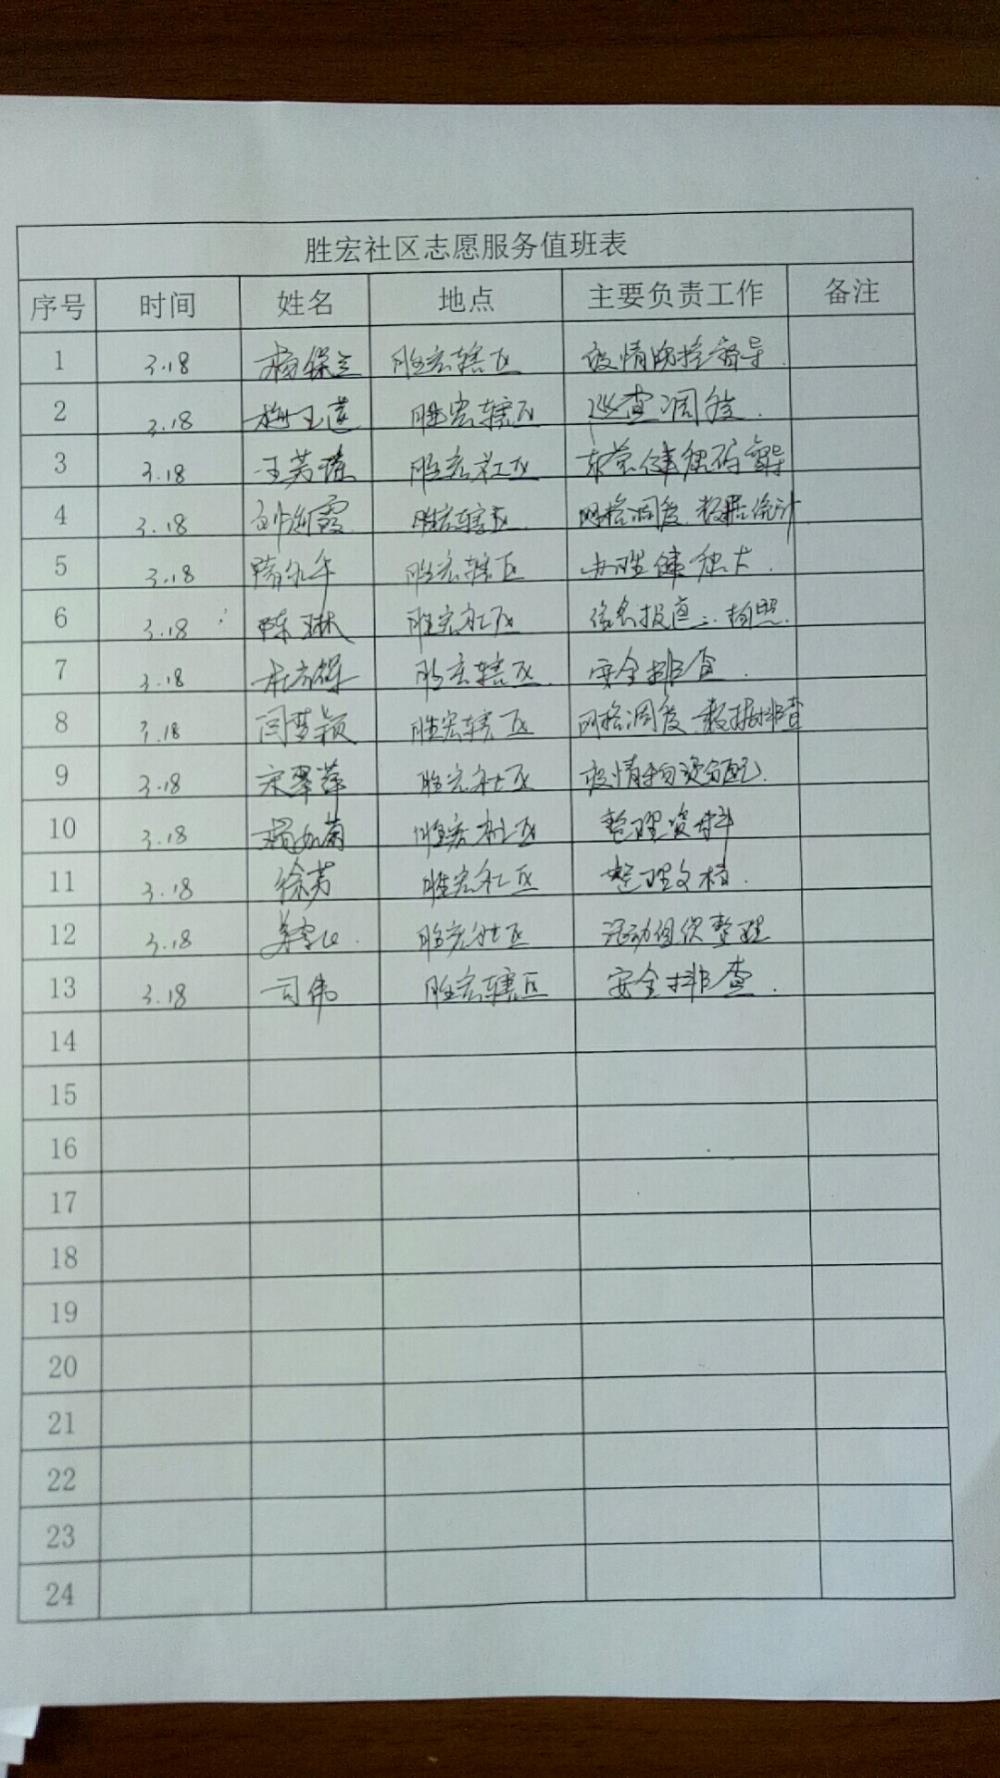 胜宏社区志愿服务值班表
序号 时间 姓名 地点 主要负责工作 备注
1 3.18 杨保兰 胜宏辖区 疫情防控督导
2 3.18 梅玉莲 胜宏辖区 巡查调度
3 3.18 王芳 胜宏社区 东营健康码督导
4 3.18 刘海霞 胜宏辖区 网格调度、数据统计
5 3.18 胜宏辖区 办理健康卡
6 3.18 陈琳 胜宏社区 拍照
7 3.18 胜宏辖区 安全排查
8 3.18 闫梦颖 胜宏辖区 网格调度、数据排查
9 3.18 宋翠萍 胜宏社区 疫情物资分配
10 3.18 胜宏社区 整理资料
11 3.18 徐芳 胜宏社区 整理文档
12 3.18 胜宏社区 活动组织整理
13 3.18 司伟 胜宏辖区 安全排查
14
15
16
17
18
19
20
21
22
23
24